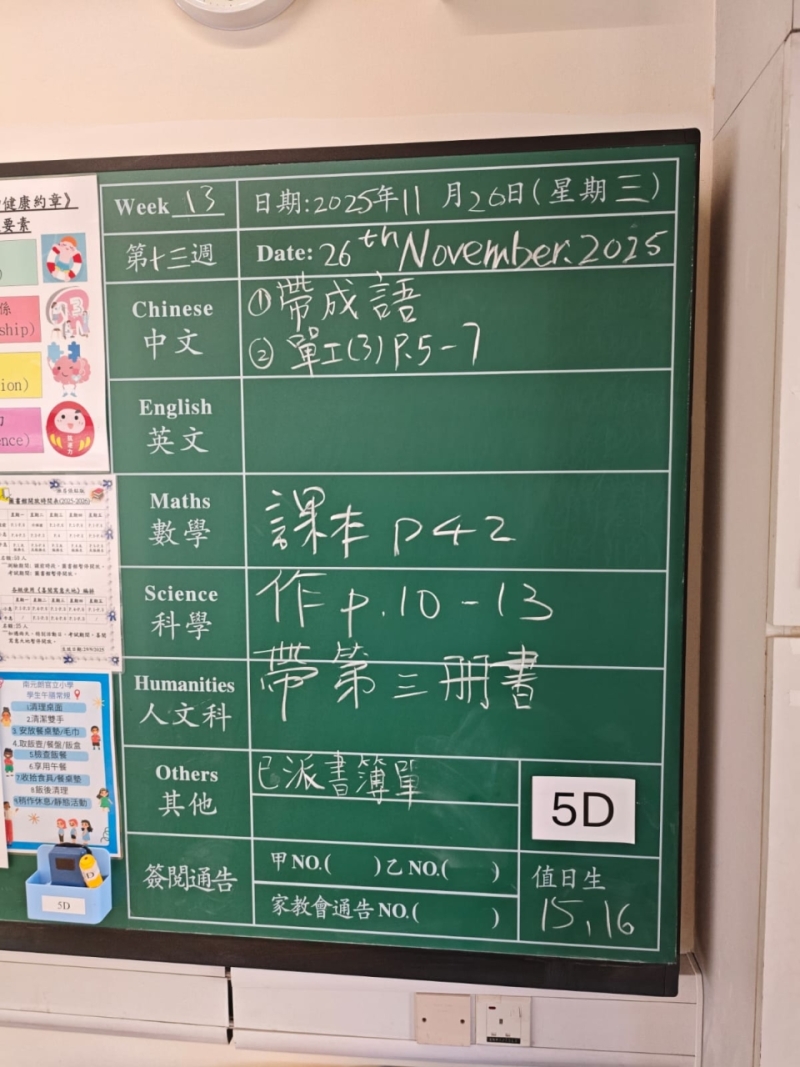 健康約章》
要素
係
ship)
ion)
力
ence)
圖書館開放時間表(2025-2026)
南元朗官立小學
學生午膳常規
1清理桌面
2.清潔雙手
3.安放餐桌墊/毛巾
4.取飯壺/餐盤/飯盒
5檢查飯餐
6.享用午餐
7.收拾食具/餐桌墊
8飯後清理
9.稍作休息/靜態活動
5D
Week 13
日期:2025年11月26日(星期三)
第十三週
Date: 26th November.2025
Chinese
中文
①帶成語
②單工(3)P.5-7
English
英文
Maths
數學
課本 p42
Science
科學
作 p.10-13
Humanities
人文科
帶第三冊書
Others
其他
已派書簿單
5D
簽閱通告
甲NO.( )乙NO.( )
家教會通告NO.( )
值日生
15,16